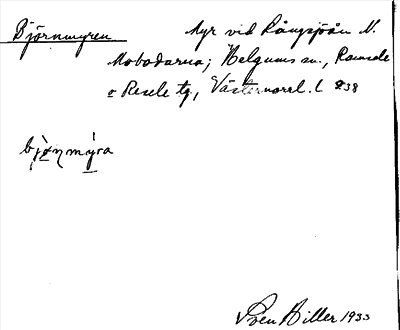 Björnmyren
Myr vid Långsjöån N.
Mobodarna; Helgums sn., Ramsele
o Resele tg, Västernorrl. l 238
bjö̀ṇmýra
Sven Hiller 1933